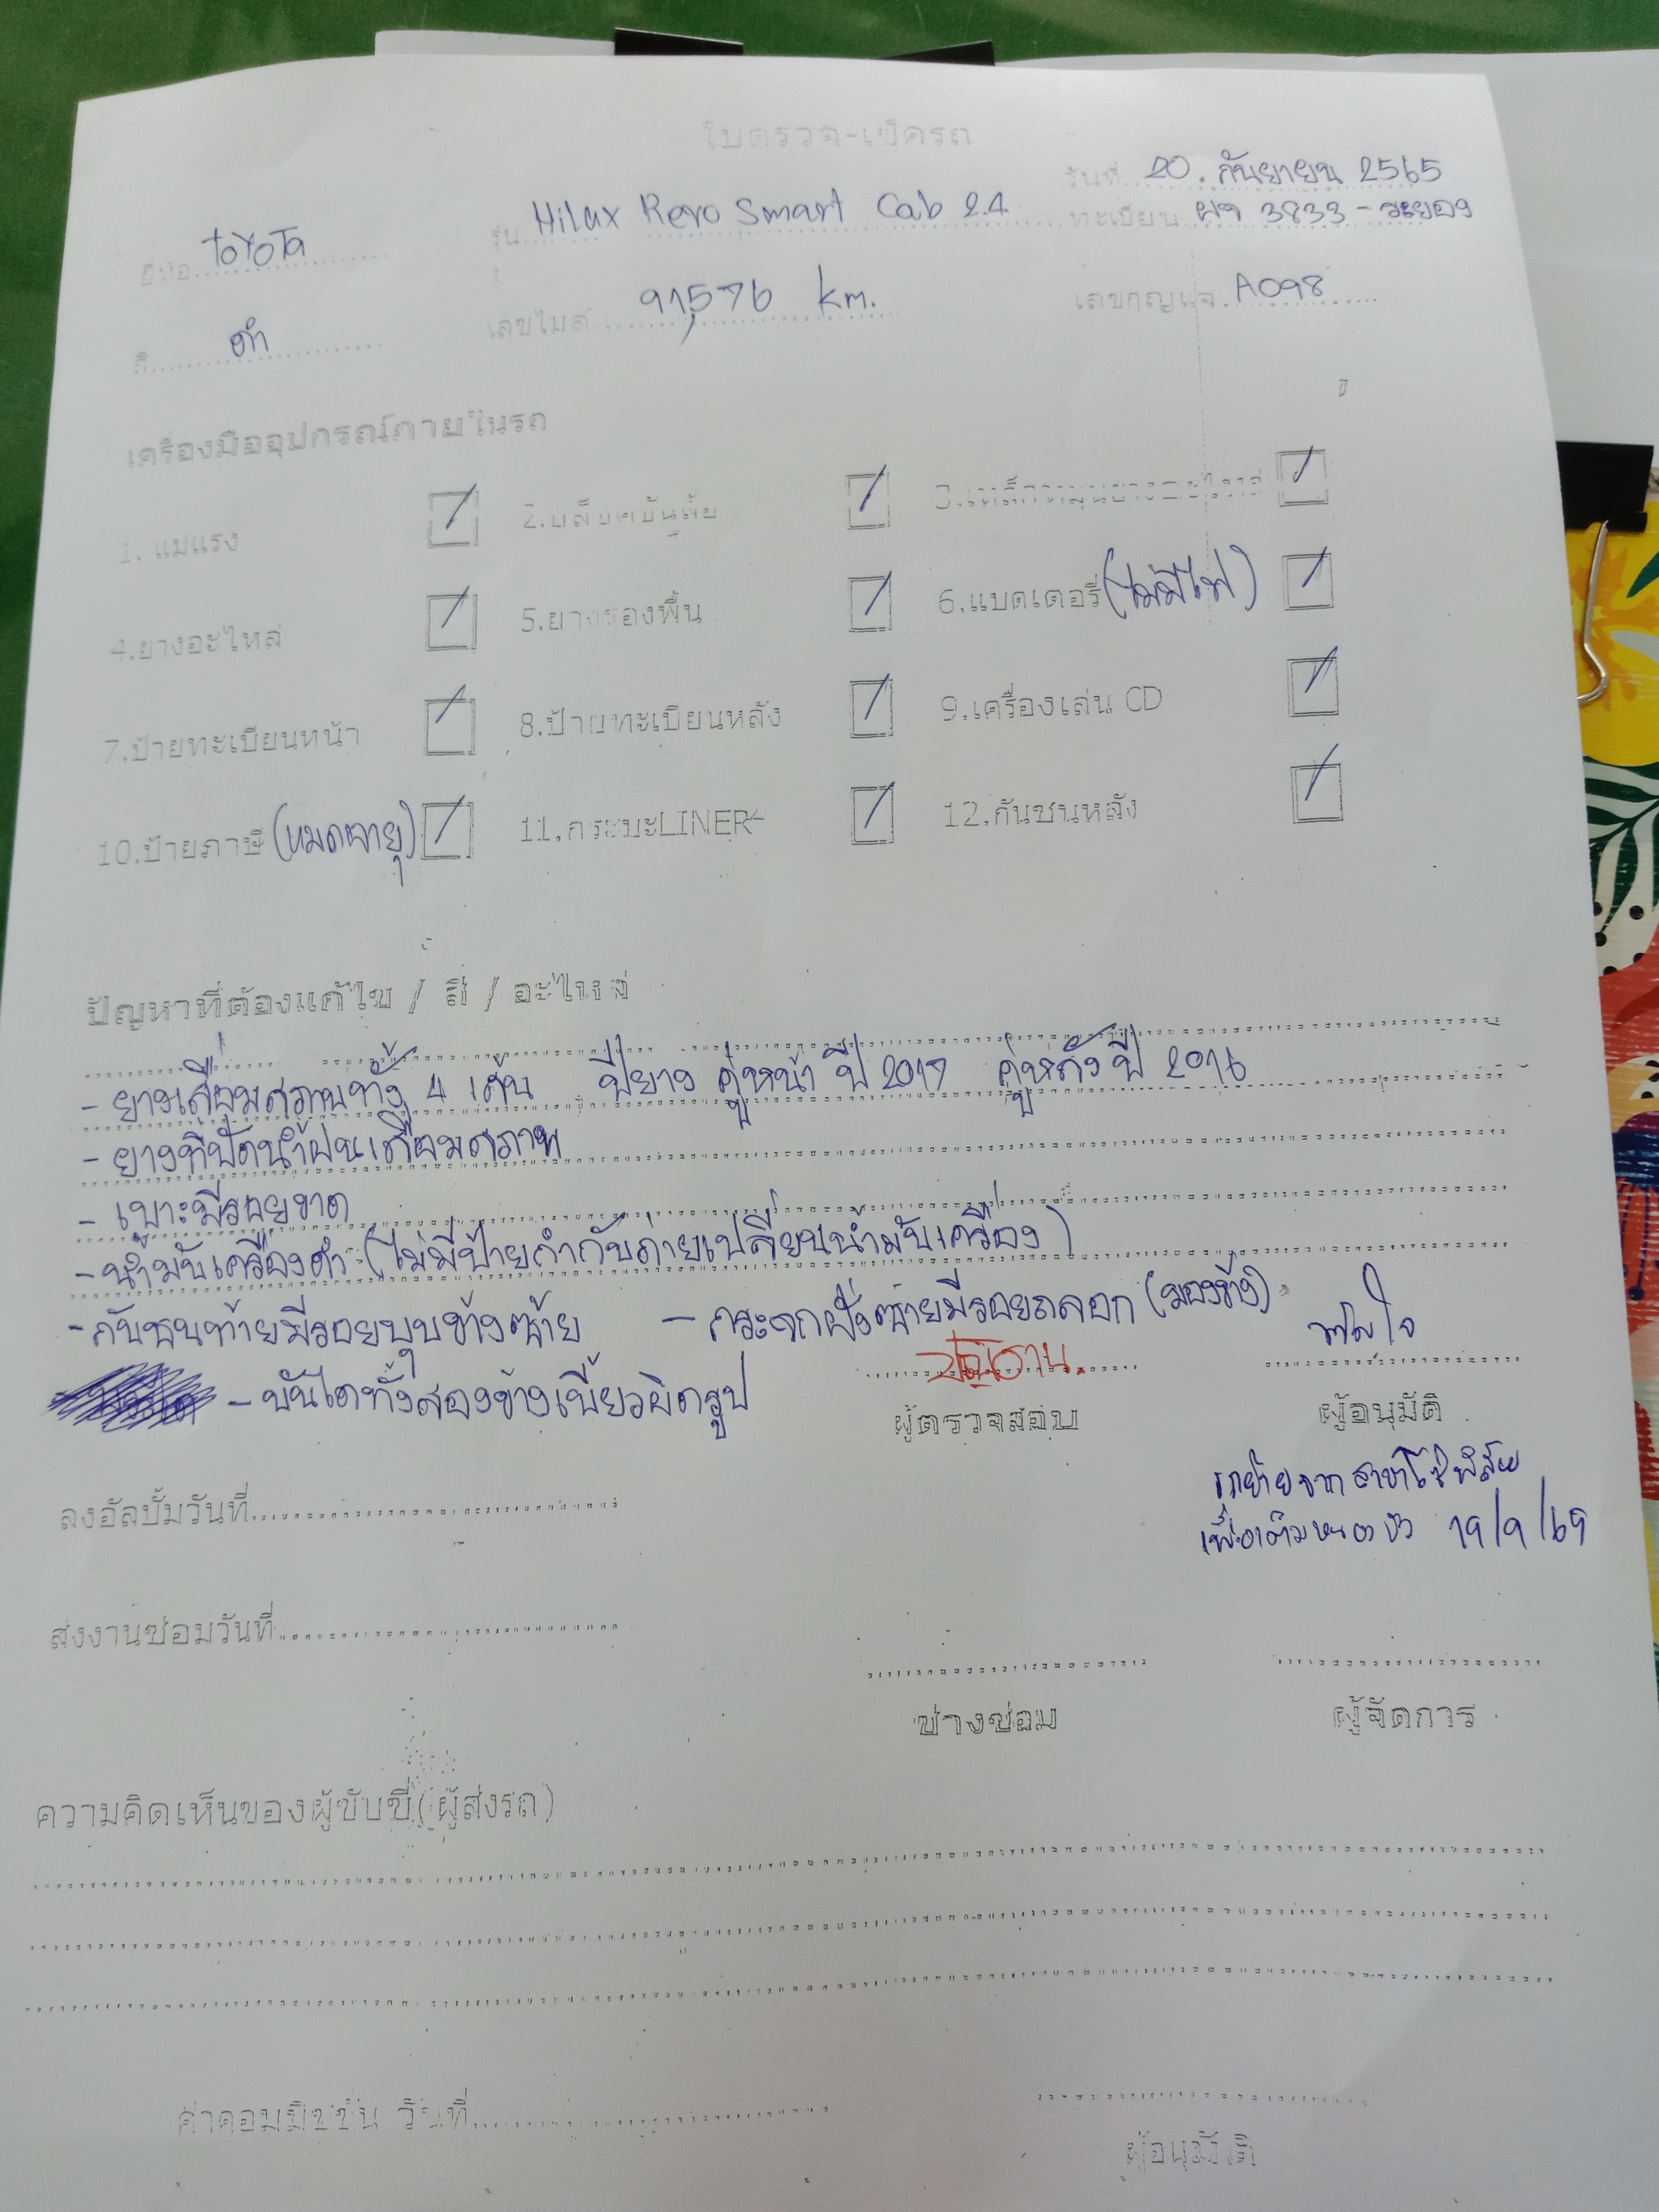 ใบตรวจ-เช็ครถ
วันที่ 20. กันยายน 2565
ยี่ห้อ TOYOTA รุ่น Hilux Revo Smart Cab 2.4 ทะเบียน ผจ 3833 - ระยอง
สี ดำ เลขไมล์ 91,576 km. เลขกุญแจ A098
เครื่องมืออุปกรณ์ภายในรถ
1. แม่แรง 2.บล็อคขันล้อ
4.ยางอะไหล่ 5.ยางรองพื้น 6.แบตเตอรี่ (ไม่มีไฟ)
7.ป้ายทะเบียนหน้า 8.ป้ายทะเบียนหลัง 9.เครื่องเล่น CD
10.ป้ายภาษี (หมดอายุ) 11.กระบะLINER 12.กันชนหลัง
ปัญหาที่ต้องแก้ไข / สี / อะไหล่
- ยางเสื่อมสภาพทั้ง 4 เส้น ปียาง คู่หน้า ปี 2017 คู่หลัง ปี 2016
- ยางที่ปัดน้ำฝนเสื่อมสภาพ
- เบาะมีรอยขาด
- น้ำมันเครื่องดำ (ไม่มีป้ายกำกับถ่ายเปลี่ยนน้ำมันเครื่อง)
- กันชนท้ายมีรอยบุบข้างซ้าย - กระจกฝั่งซ้ายมีรอยถลอก (มองข้าง)
- บันไดทั้งสองข้างเบี้ยวผิดรูป
ผู้ตรวจสอบ ผู้อนุมัติ
ลงอัลบั้มวันที่
19/9/65
ส่งงานซ่อมวันที่
ช่างซ่อม ผู้จัดการ
ความคิดเห็นของผู้ขับขี่(ผู้ส่งรถ)
ค่าคอมมิชชั่น วันที่
ผู้อนุมัติ